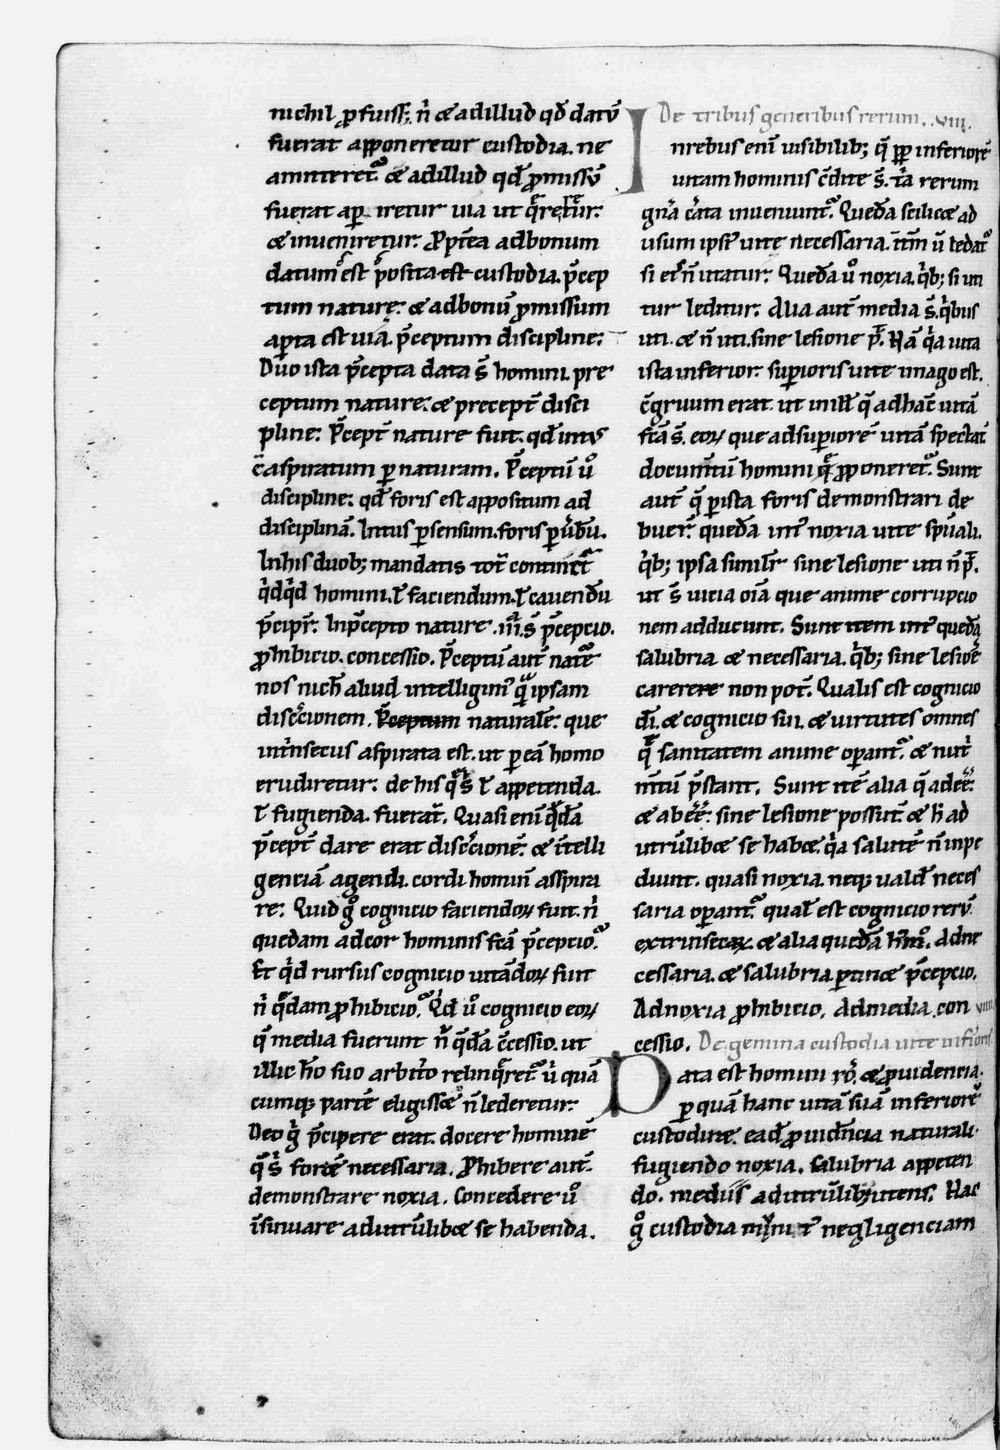 nichil ꝓfuiss&; n̄ & ad illud qd̄ datū
fuerat apponeretur custodia. ne
amitteret᷒ & ad illud qd̄ ꝓmissū
fuerat aꝑiretur uia ut q̄reretur.
& inueniretur. Ꝓpt̄ea ad bonum
datum est p̄posita est custodia. p̄cep
tum naturę. & ad bonū ꝓmissum
aꝑta est uia. p̄ceptum discipline.
Duo ista p̄cepta data s̄ homini. pre
ceptum nature. & precept̄ disci
pline. P̄cept̄ nature fuit. qd̄ int᷒
ē aspiratum ꝑ naturam. P̄ceptū u̾o
discipline. qd̄ foris est appositum ad
disciplinā. Intus ꝑ sensum. foris ꝑ u̾bū.
In his duob; mandatis tot̄ continet᷒
q̇dq̇d homini. ł faciendum. ł cauendū
p̄cipit᷒. In p̄cepto nature .iii. s̄ p̄cepcio.
ꝓhibicio. concessio. P̄ceptū aut̄ nat̄e
nos nich̄ aliud intelligim᷒ q̄ ipsam
discrecionem. P̄ceptum naturalē. que
int̄nsecus aspirata est. ut ꝑ eā homo
erudiretur. de his q̄ s̄ ł appetenda.
ł fugienda. fuerat̄. Quasi enī q̄dā
p̄cept̄ dare erat discrecionē. & intelli
genciā agendi. cordi homin̄ asspira
re. Quid g̊ cognicio faciendoꝝ fuit. n̄
quedam ad cor hominis fc̄a p̄cepcio.
Et q̇d rursus cognicio uitādoꝝ fuit
n̄ q̄dam ꝓhibicio. Qd̄ u̾o cognicio eoꝝ
q̄ media fuerunt n̄ q̄dā c̄cessio. ut
illic hō suo arbit̾o relinq̄ret᷒ u̇ quā
cumq; partē eligiss& n̄ lederetur.
Deo g̊ p̄cipere erat. docere hominē
q̄ s̄ forēt necessaria. Ꝓhibere aut̄.
demonstrare noxia. Concedere u̾o
īsinuare ad utrūlib& se habenda.
De tribus generibus rerum. .viii.
In rebus enī uisibilib; q̄ ꝓp̄ inferiorē
uitam hominis c̄dite s̄. t̾a rerum
gn̄a c̾ata inueniunt᷒. Quedā scilic& ad
usum ipsi᷒ uite necessaria. it̄m ū ledat᷒
si eis n̄ utatur. Quedā u̾o noxia. q̇b; si uti
tur leditur. Alia aut̄ media s̄. q̇bus
uti. & n̄ uti. sine lesione p̄t. Nā q̇a uita
ista inferior superioris uite imago est.
c̄gruum erat. ut in ill̄ q̄ ad hāc uitā
fc̄a s̄. eoꝝ que ad superiorē uitā spectāt
documtū homini q̄ ꝓponeret᷒. Sunt
aut̄ q̄ ꝑ ista foris demonstrari de
buer̄. quedā int᷒ noxia uite sp̄uali.
q̇b; ipsa simil̄r sine lesione uti n̄ p̄t.
ut s̄ uicia oīa que anime corrupcio
nem adducunt. Sunt item int᷒ quedā
salubria & necessaria. q̇b; sine lesiōe
carerere non pot̄. Qualis est cognicio
dī. & cognicio sui. & uirtutes omnes
q̄ sanitatem anime oꝑant᷒. & nut̾i
m̄tū p̄stant. Sunt itē alia q̄ adee̅.
& abee̅. sine lesione possūt & h̄ ad
utrūlib& se hab&. q̇a salutē n̄ inpe
diunt. quasi noxia. neq; uald̄ neces
saria oꝑant᷒. qual̄ est cognicio rerū
extrinsecaꝝ. & alia quedā h᷒mōi. Ad ne
cessaria. & salubria ꝑtin& p̄cepcio.
Ad noxia ꝓhibicio. Ad media con
cessio. De gemina custodia uite inferioris. viiii
Data est homini rō. & ꝓuidencia.
ꝑ quā hanc uitā suā inferiorē
custodiret. eadē ꝓuidn̄cia naturali.
fugiendo noxia. salubria appeten
do. mediis ad utrūlib; utens. Hac
g̊ custodia ... negligenciam